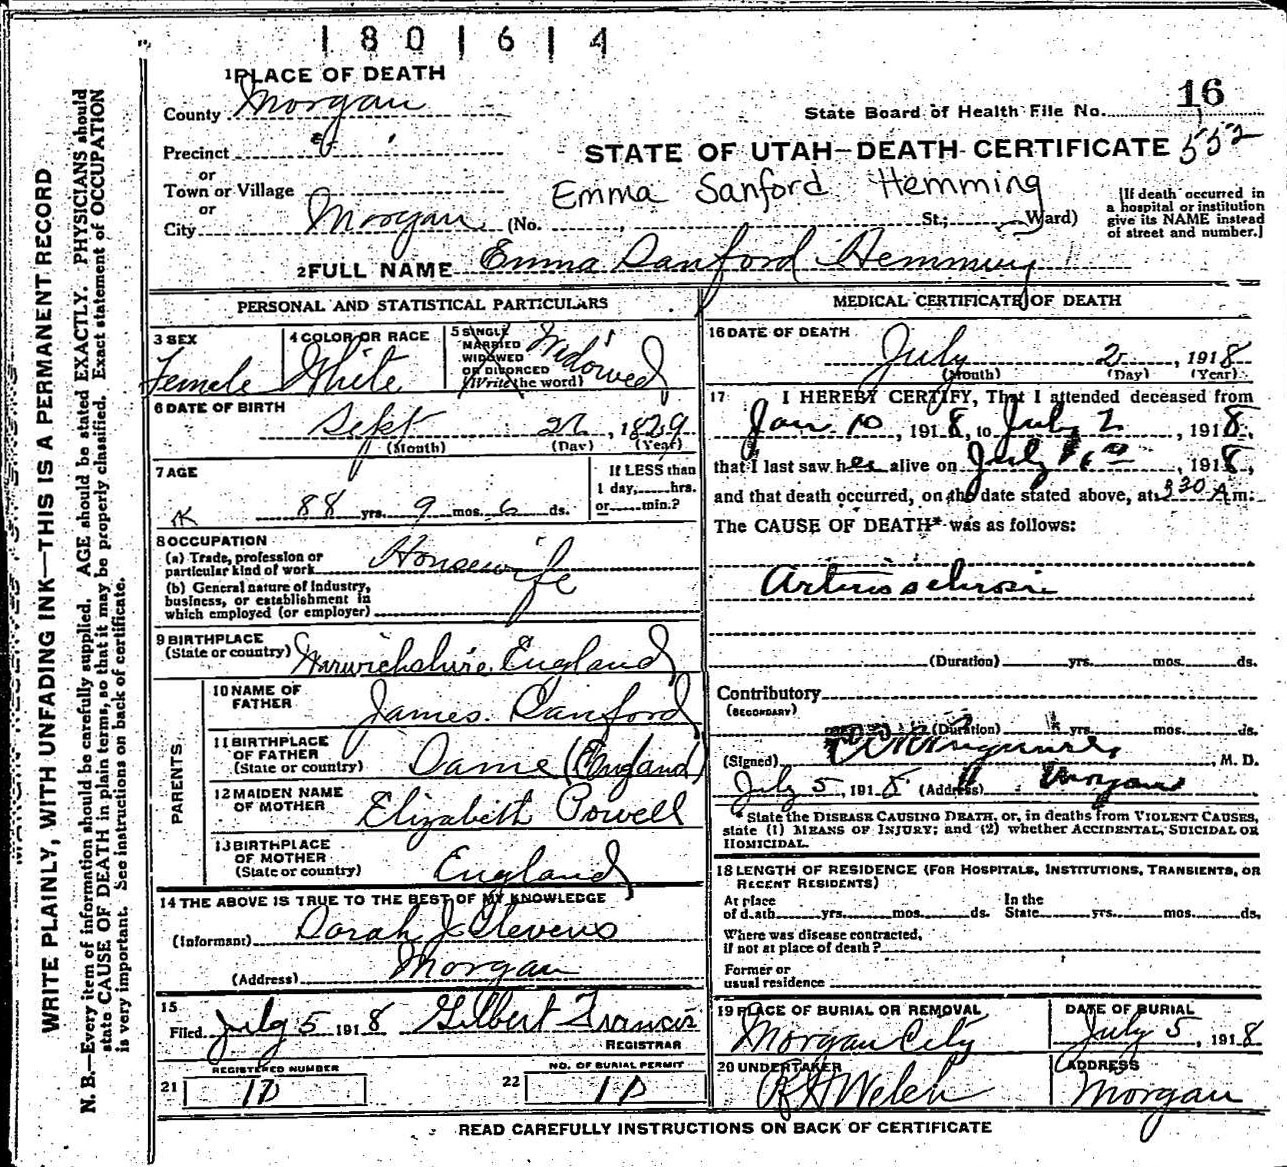 1801614
1 PLACE OF DEATH
County Morgan
State Board of Health File No. 16
552
Precinct
STATE OF UTAH—DEATH CERTIFICATE
or
Town or Village
Emma Sanford Hemming
or
City Morgan (No. St.; Ward)
[If death occurred in
a hospital or institution
give its NAME instead
of street and number.]
2 FULL NAME Emma Sanford Hemming
PERSONAL AND STATISTICAL PARTICULARS
3 SEX
Female
4 COLOR OR RACE
White
5 SINGLE
MARRIED
WIDOWED
OR DIVORCED
(Write the word)
Widowed
6 DATE OF BIRTH
Sept 1829
(Month) (Day) (Year)
7 AGE
88 yrs. 9 mos. 6 ds.
If LESS than
1 day, hrs.
or min.?
8 OCCUPATION
(a) Trade, profession or
particular kind of work Housewife
(b) General nature of industry,
business, or establishment in
which employed (or employer)
9 BIRTHPLACE
(State or country) Warwichshire England
PARENTS
10 NAME OF
FATHER James Sanford
11 BIRTHPLACE
OF FATHER
(State or country) Same (England)
12 MAIDEN NAME
OF MOTHER Elizabeth Powell
13 BIRTHPLACE
OF MOTHER
(State or country) England
14 THE ABOVE IS TRUE TO THE BEST OF MY KNOWLEDGE
(Informant) Sarah J. Stevens
(Address) Morgan
15
Filed July 5 1918 Gilbert Francis
REGISTRAR
REGISTERED NUMBER
21 10
NO. OF BURIAL PERMIT
22 10
MEDICAL CERTIFICATE OF DEATH
16 DATE OF DEATH
July 2, 1918
(Month) (Day) (Year)
17 I HEREBY CERTIFY, That I attended deceased from
Jan. 10, 1918, to July 2, 1918,
that I last saw her alive on July 1918,
and that death occurred, on the date stated above, at 3 30 A m.
The CAUSE OF DEATH* was as follows:
(Duration) yrs. mos. ds.
Contributory
(SECONDARY)
(Duration) yrs. mos. ds.
(Signed) M. D.
July 5, 1918 (Address) Morgan
*State the DISEASE CAUSING DEATH, or, in deaths from VIOLENT CAUSES,
state (1) MEANS OF INJURY; and (2) whether ACCIDENTAL, SUICIDAL OR
HOMICIDAL.
18 LENGTH OF RESIDENCE (FOR HOSPITALS, INSTITUTIONS, TRANSIENTS, OR
RECENT RESIDENTS)
At place
of death yrs. mos. ds.
In the
State yrs. mos. ds.
Where was disease contracted,
if not at place of death?
Former or
usual residence
19 PLACE OF BURIAL OR REMOVAL
Morgan City
DATE OF BURIAL
July 5, 1918
20 UNDERTAKER
R H Welch
ADDRESS
Morgan
READ CAREFULLY INSTRUCTIONS ON BACK OF CERTIFICATE
WRITE PLAINLY, WITH UNFADING INK—THIS IS A PERMANENT RECORD
N. B.—Every item of information should be carefully supplied. AGE should be stated EXACTLY. PHYSICIANS should
state CAUSE OF DEATH in plain terms, so that it may be properly classified. Exact statement of OCCUPATION
is very important. See instructions on back of certificate.